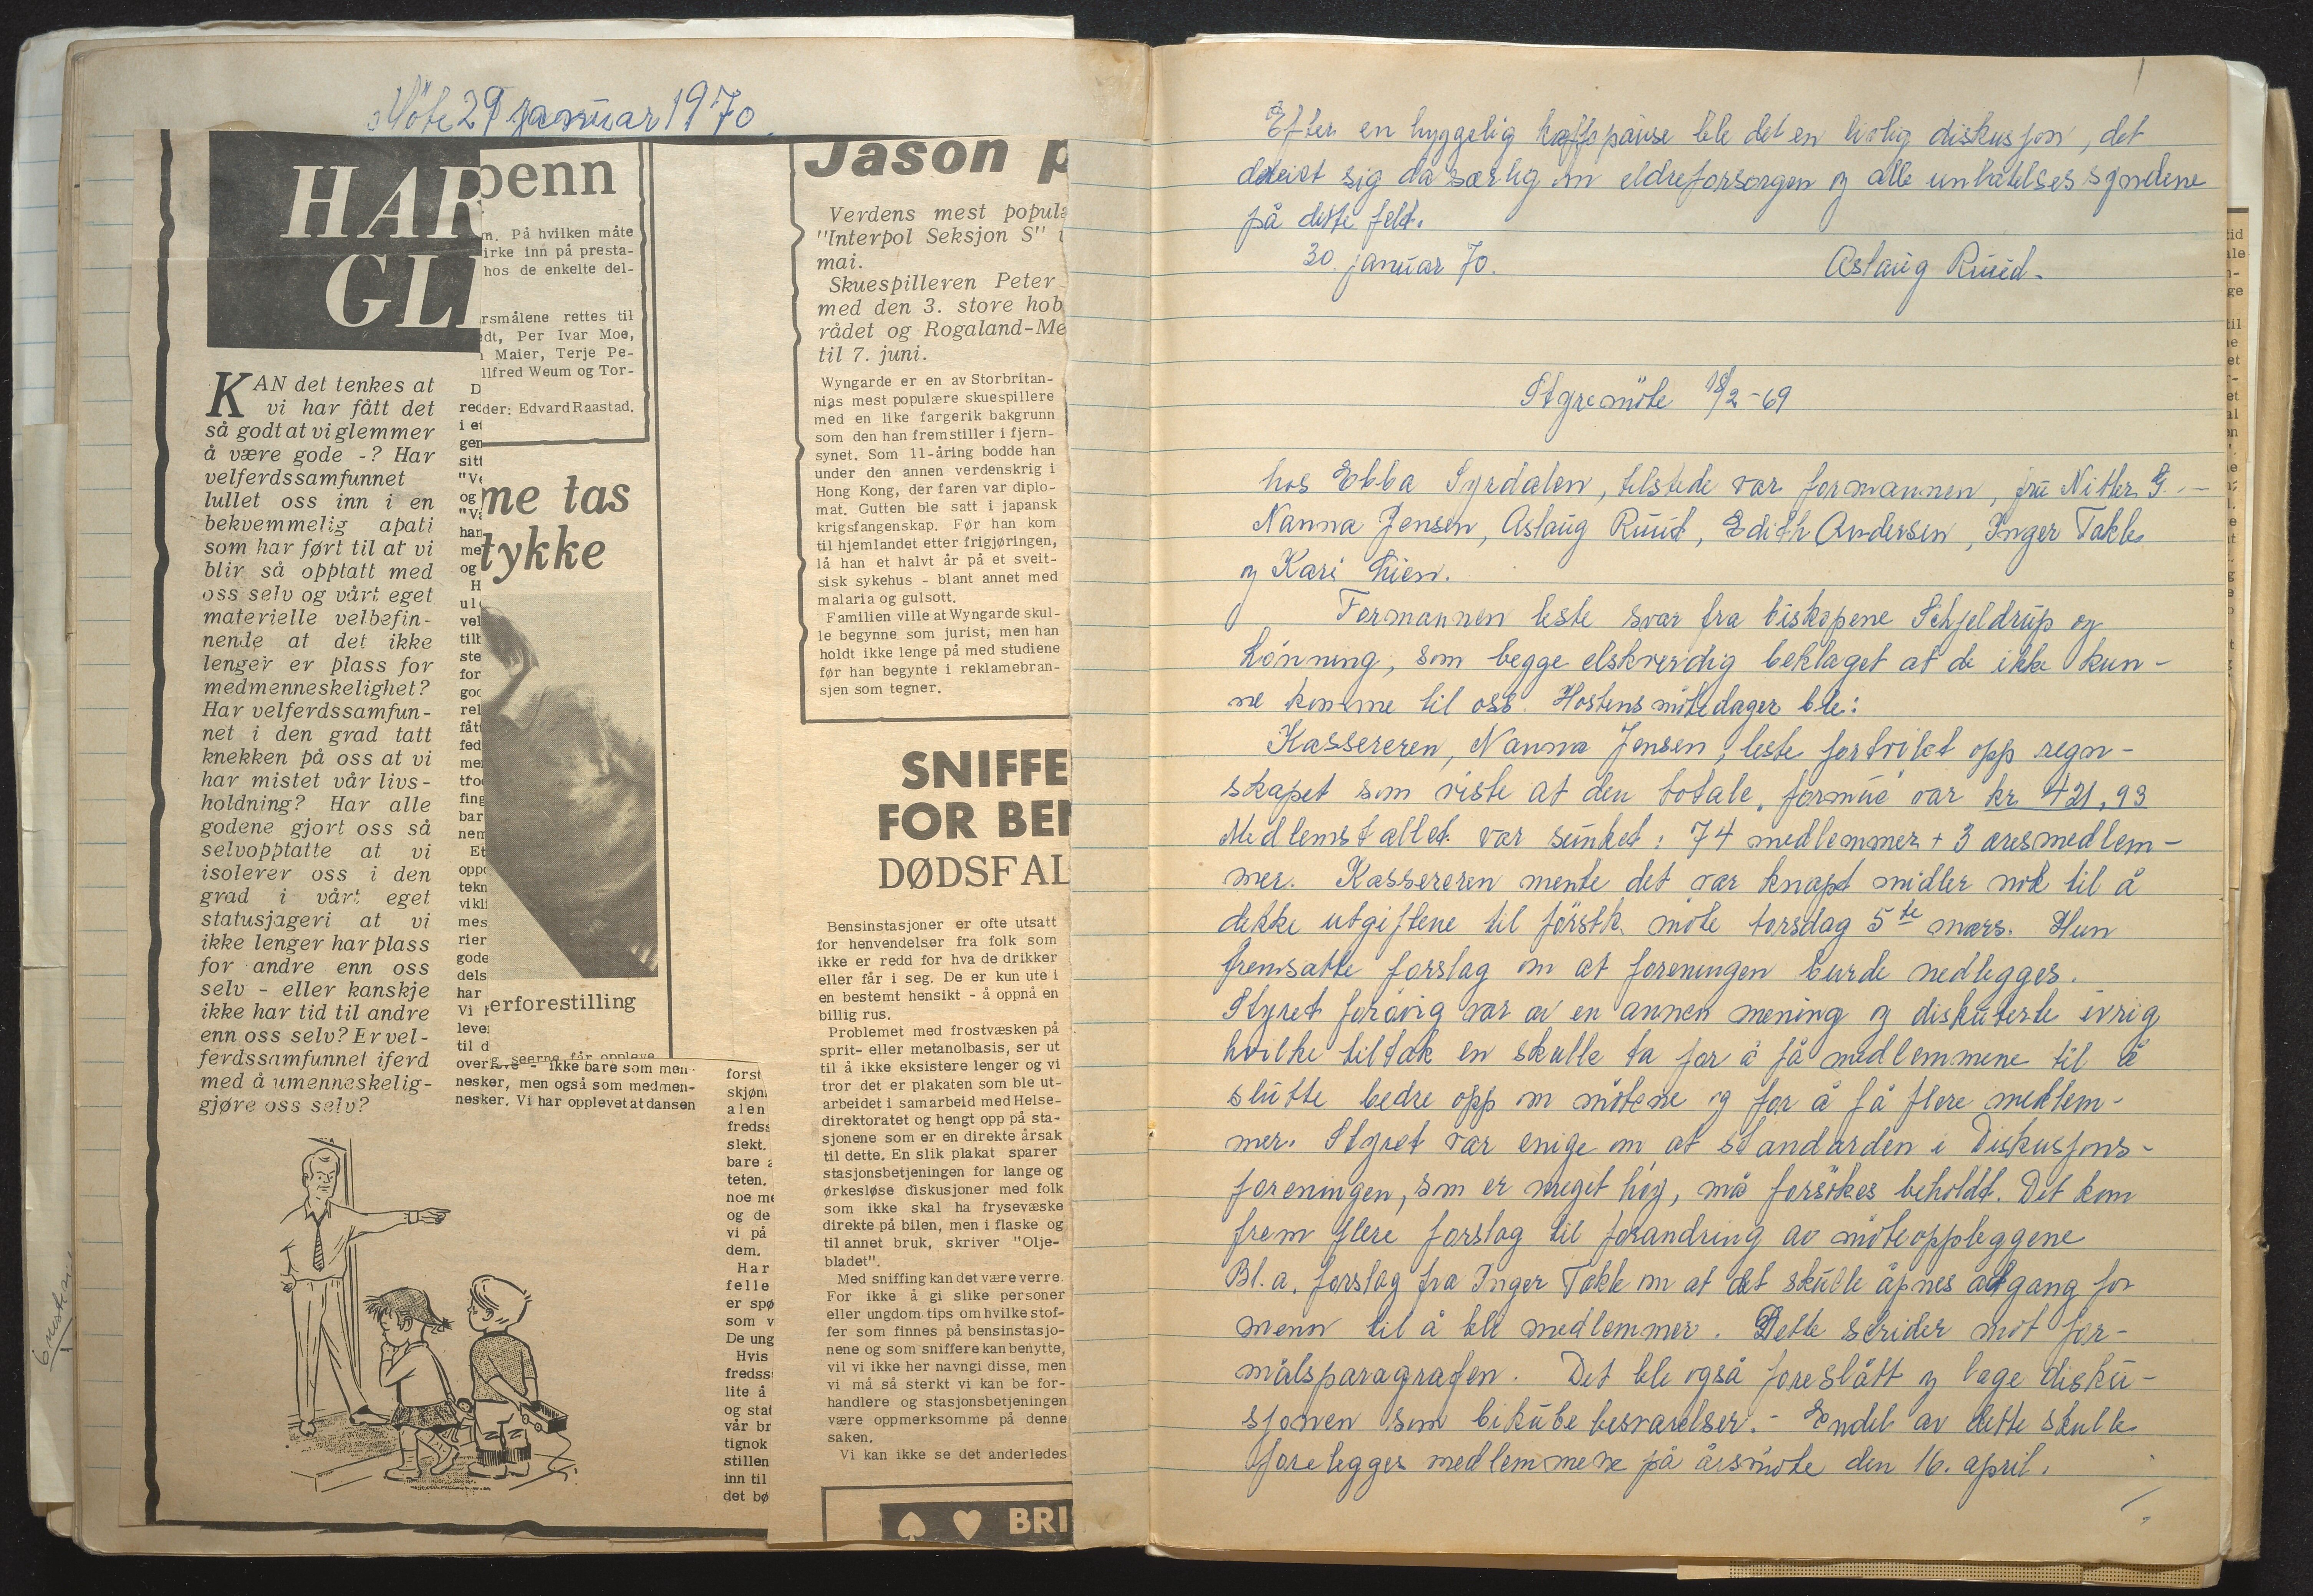 Möte 29 januar 1970.
HAR
GL
KAN det tenkes at
vi har fått det
så godt at vi glemmer
å være gode -? Har
velferdssamfunnet
lullet oss inn i en
bekvemmelig apati
som har ført til at vi
blir så opptatt med
oss selv og vårt eget
materielle velbefin-
nende at det ikke
lenger er plass for
medmenneskelighet?
Har velferdssamfun-
net i den grad tatt
knekken på oss at vi
har mistet vår livs-
holdning? Har alle
godene gjort oss så
selvopptatte at vi
isolerer oss i den
grad i vårt eget
statusjageri at vi
ikke lenger har plass
for andre enn oss
selv - eller kanskje
ikke har tid til andre
enn oss selv? Er vel-
ferdssamfunnet iferd
med å umenneskelig-
gjøre oss selv?
D
red
i et
gen
sitt
"Ve
og
"Va
han
me
og
H
ul
vel
tilb
ste
for
god
rel
fått
fed
me
tro
fing
bar
nem
Et
oppo
tekn
vikli
mes
rier
gode
dels
har
Vi
leve
til d
over
- ikke bare som men-
nesker, men også som medmen-
nesker. Vi har opplevet at dansen
penn
m. På hvilken måte
irke inn på presta-
hos de enkelte del-
rsmålene rettes til
edt, Per Ivar Moe,
Maier, Terje Pe-
llfred Weum og Tor-
der: Edvard Raastad.
me tas
tykke
erforestilling
seerne får oppleve
forst
skjøn
alen
freds
slekt.
bare a
teten.
noe me
og de
vi på
dem.
Har
felle
er spø
som v
De ung
Hvis
fredss
lite å
og stat
vår br
tignok
stillen
inn til
det bø
Jason p
Verdens mest popula
"Interpol Seksjon S" i
mai.
Skuespilleren Peter
med den 3. store hob
rådet og Rogaland-Me
til 7. juni.
Wyngarde er en av Storbritan-
nias mest populære skuespillere
med en like fargerik bakgrunn
som den han fremstiller i fjern-
synet. Som 11-åring bodde han
under den annen verdenskrig i
Hong Kong, der faren var diplo-
mat. Gutten ble satt i japansk
krigsfangenskap. Før han kom
til hjemlandet etter frigjøringen,
lå han et halvt år på et sveit-
sisk sykehus - blant annet med
malaria og gulsott.
Familien ville at Wyngarde skul-
le begynne som jurist, men han
holdt ikke lenge på med studiene
før han begynte i reklamebran-
sjen som tegner.
SNIFFE
FOR BEN
DØDSFAL
Bensinstasjoner er ofte utsatt
for henvendelser fra folk som
ikke er redd for hva de drikker
eller får i seg. De er kun ute i
en bestemt hensikt - å oppnå en
billig rus.
Problemet med frostvæsken på
sprit- eller metanolbasis, ser ut
til å ikke eksistere lenger og vi
tror det er plakaten som ble ut-
arbeidet i samarbeid med Helse-
direktoratet og hengt opp på sta-
sjonene som er en direkte årsak
til dette. En slik plakat sparer
stasjonsbetjeningen for lange og
ørkesløse diskusjoner med folk
som ikke skal ha frysevæske
direkte på bilen, men i flaske og
til annet bruk, skriver "Olje-
bladet".
Med sniffing kan det være verre.
For ikke å gi slike personer
eller ungdom tips om hvilke stof-
fer som finnes på bensinstasjo-
nene og som sniffere kan benytte,
vil vi ikke her navngi disse, men
vi må så sterkt vi kan be for-
handlere og stasjonsbetjeningen
være oppmerksomme på denne
saken.
Vi kan ikke se det anderledes
BRI
Efter en hyggelig kaffepause ble det en livlig diskusjon, det
dreiet sig da særlig om eldreforsorgen og alle unlatelses syndene
på dette felt.
30. januar 70. Aslaug Ruud.
Styremöte 18/2-69
hos Ebba Syrdalen, tilstede var formannen, fru Nitter G. -
Nanna Jensen, Aslaug Ruud, Edith Andersen, Inger Takle
og Kari Lien.
Formannen leste svar fra biskopene Schjeldrup og
Lönning, som begge elskverdig beklaget at de ikke kun-
ne komme til oss. Höstens mötedager ble:
Kassereren, Nanna Jensen, leste fortvilet opp regn-
skapet som viste at den totale "formue" var kr. 421,93
Medlemstallet var sunket: 74 medlemmer + 3 æresmedlem-
mer. Kassereren mente det var knapt midler nok til å
dekke utgiftene til förstk. möte torsdag 5te mars. Hun
fremsatte forslag om at foreningen burde nedlegges.
Styret forövrig var av en annen mening og diskuterte ivrig
hvilke tiltak en skulle ta for å få medlemmene til å
slutte bedre opp om mötene og for å få flere medlem-
mer. Styret var enige om at standarden i Diskusjons-
foreningen, som er meget höy, må forsökes beholdt. Det kom
frem flere forslag til forandring av möteoppleggene
Bl.a. forslag fra Inger Takle om at det skulle åpnes adgang for
menn til å bli medlemmer. Dette strider mot for-
målsparagrafen. Det ble også foreslått og lage disku-
sjonen som bikube besvarelser. - Endel av dette skulle
forelegges medlemmene på årsmöte den 16. april.